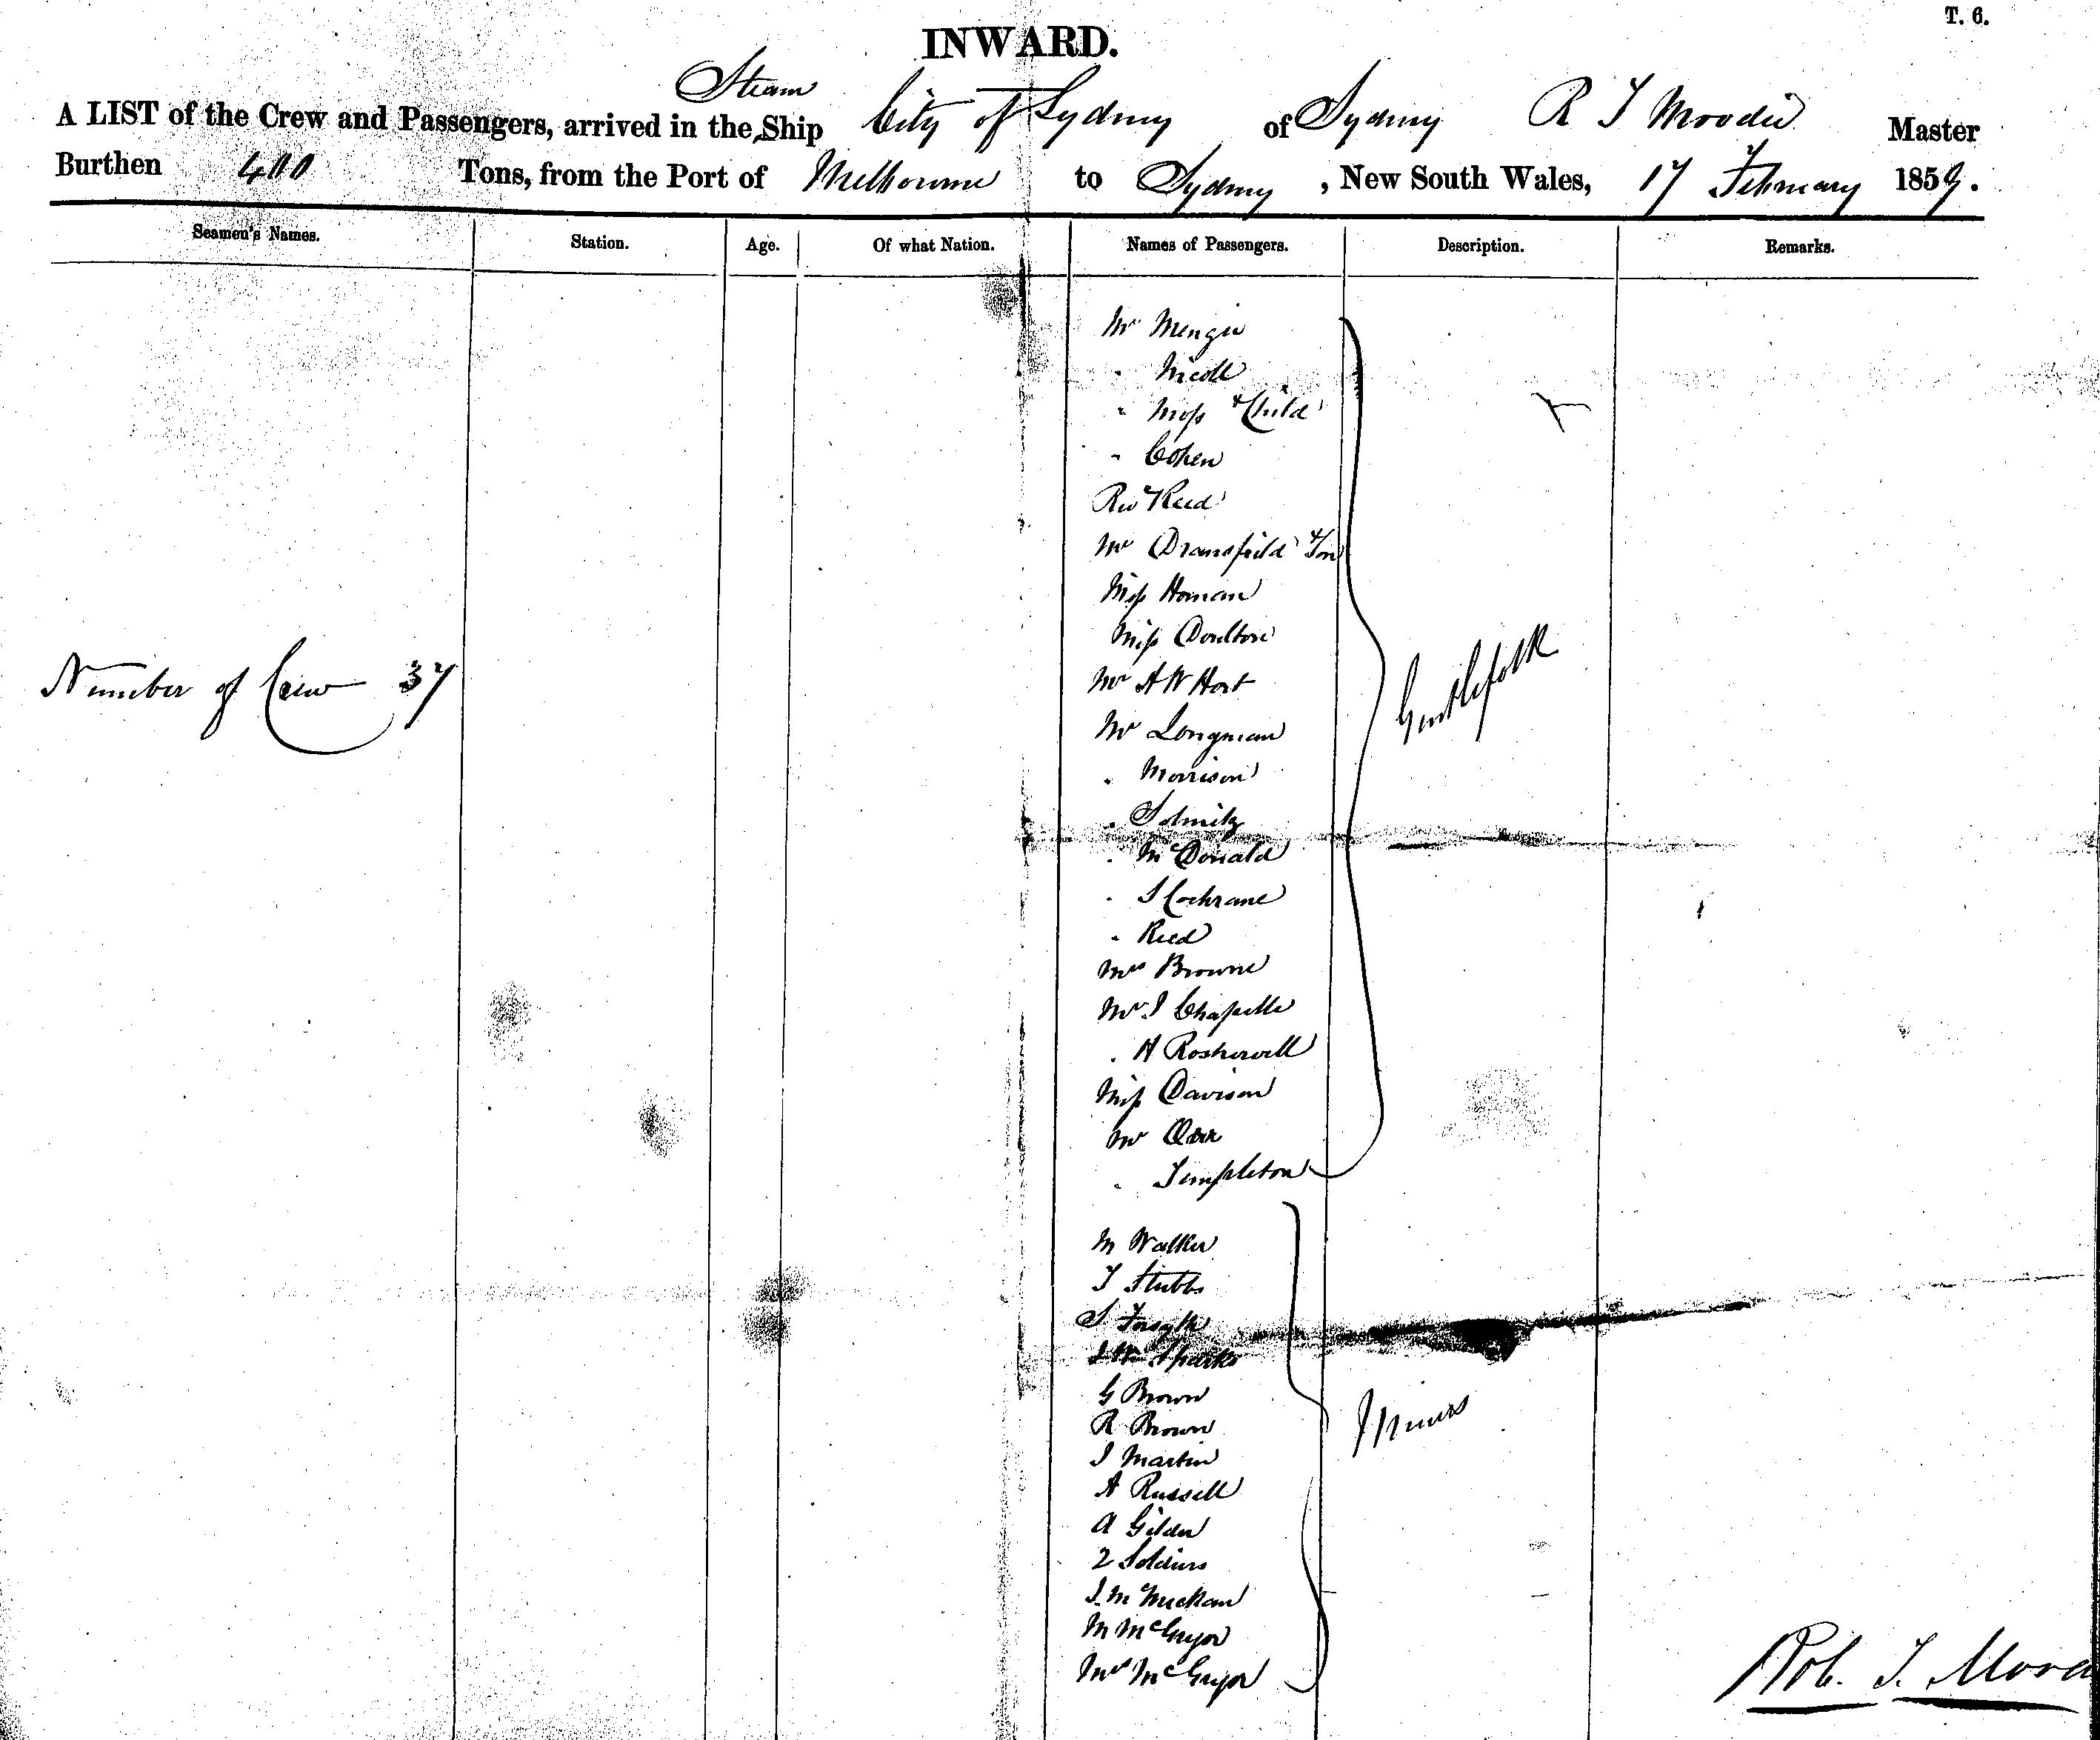 T. 6.
INWARD.
A LIST of the Crew and Passengers, arrived in the Steam Ship City of Sydney of Sydney R T Moodie Master
Burthen 400 Tons, from the Port of Melbourne to Sydney, New South Wales, 17 February 1859.
Seamen's Names. Station. Age. Of what Nation. Names of Passengers. Description. Remarks.
Mr Menzie
" Nicoll
" Moss & Child
" Cohen
Rev Reed
Mr Dransfield & Son
Miss Homan
Miss Doulton
Number of Crew 37
Mr A W Hort
Gentlefolk
Mr Longman
" Morrison
" Solmitz
" McDonald
" J Cochrane
" Reed
Mrs Browne
Mr J Chapelle
" H Rosherwell
Miss Davison
Mr Orr
" Templeton
M Walker
T Stubbs
S Forsyth
J W Sparks
G Brown
R Brown
J Martin
A Russell
A Gilder
2 Soldiers
J. M
M McGregor
Mrs McGregor
Rob. T.